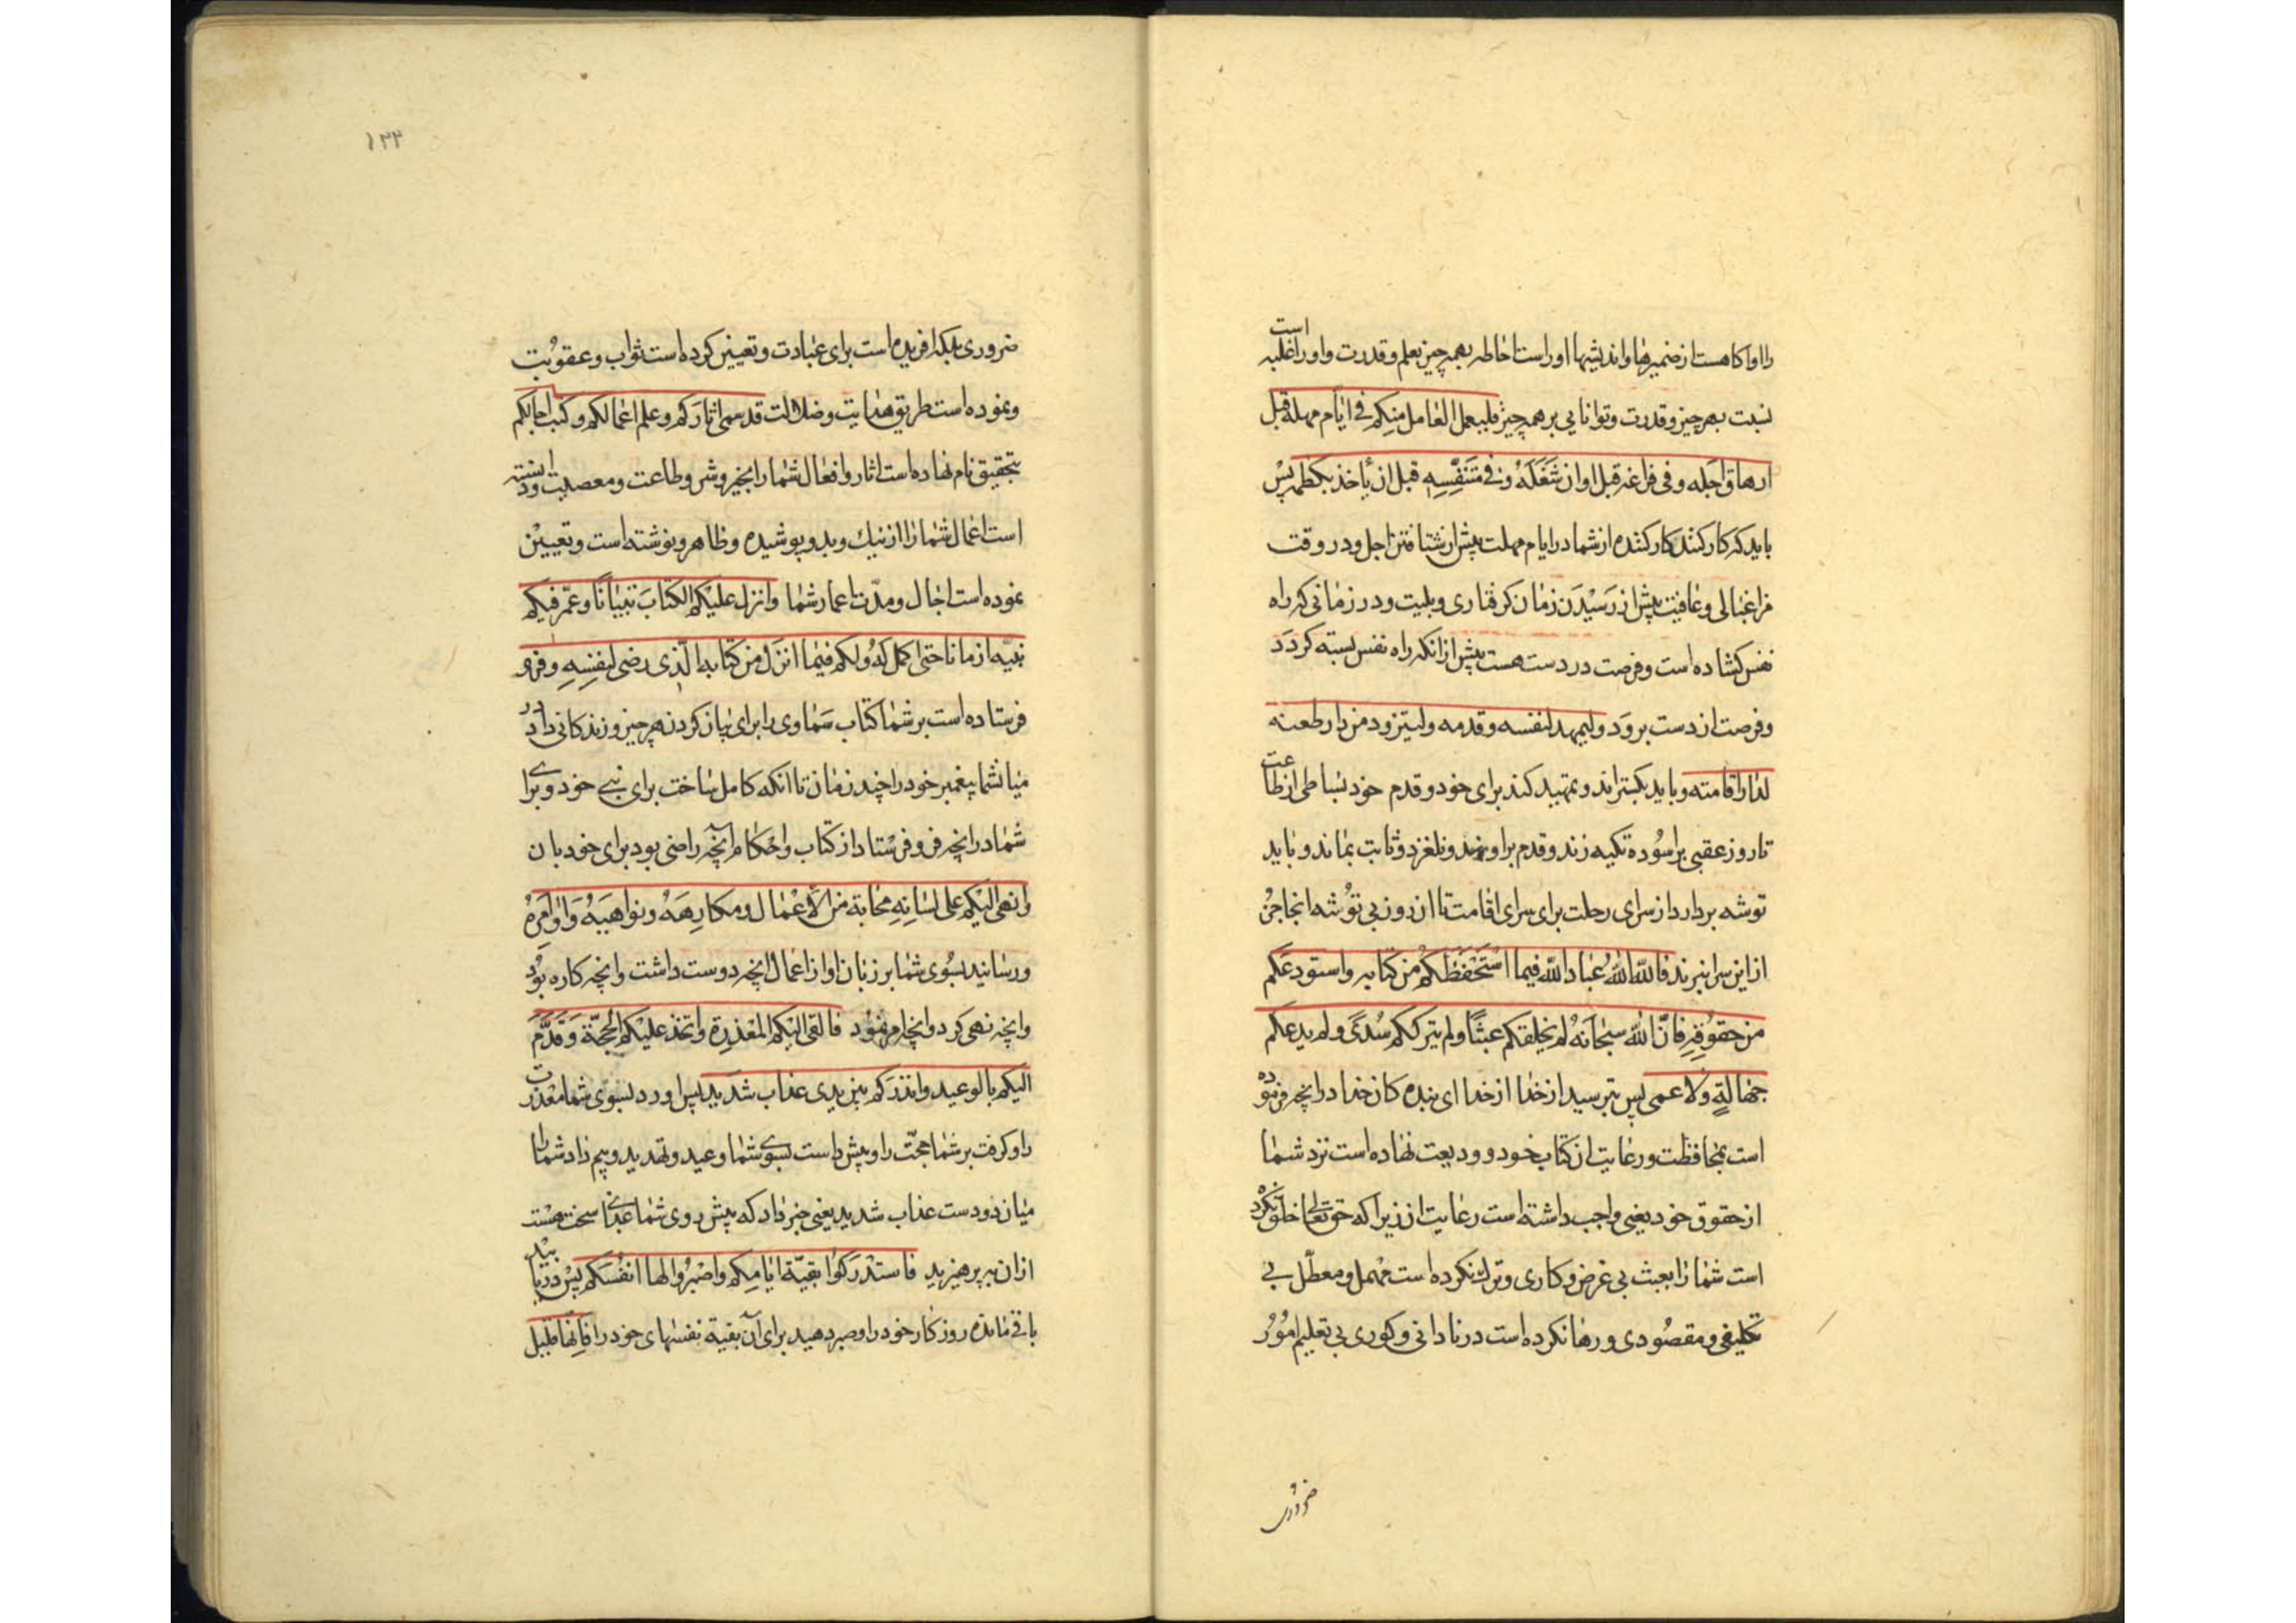 را او آکاهست از ضمیرها و اندیشها او راست احاطه بهمه چیز بعلم و قدرت و او راست غلبه
نسبت بهر چیز و قدرت و توانایی بر همه چیز فلیعمل العامل منکم فی ایام مهله قبل
ارهاق اجله و فی فراغه قبل اوان شَغَلَهُ و فی مَتَنَفَّسِهِ قبل ان یأخذ بکظمه پس
باید که کار کند کار کننده از شما در ایام مهلت پیش از شتافتن اجل و در وقت
فراغبالی و عافیت پیش از رَسیْدَن زمان کرفتاری و بلیت و در زمانی که راه
نفس کشاده است و فرصت در دست هست پیش از انکه راه نفس بسته کردَد
و فرصت از دست بروَد ولیمهد لنفسه و قدمه ولیتزود من دار ظعنه
لدار اقامته و باید بکستراند و تمهید کند برای خود و قدم خود بساطی از طاعت
تا روز عقبی بر اسوده تکیه زند و قدم بر او نهد و نلغزد و ثابت بماند و باید
توشه بردارد از سرای رحلت برای سرای اقامت تا ان روز بی توشه انجا چُن
از این سرا نبرند فاللّه اللّهُ عباد اللّه فیما اسْتَحْفَظَکُمْ من کتابه و استودعکم
من حقوقِهِ فانّ اللّه سبحانَهُ لم یخلقکم عبثًا ولم یترککم سُدًی ولم یدعکم
جهالةٍ ولا عمی پس بترسید از خدا از خدا ای بنده کان خدا در انچه فرموده
است بمحافظت و رعایت از کتاب خود و ودیعت نهاده است نزد شما
از حقوق خود یعنی واجب داشته است رعایت ان زیرا که حق تعالی خلق نکرده
است شما را بعبث بی غرض و کاری و ترک نکرده است مهمل و معطّل بی
تکلیفی و مقصُودی و رها نکرده است در نادانی و کوری بی تعلیم امُوْر
ضروری
۱۳۳
ضروری بلکه افریده است برای عبادت و تعیین کرده است ثواب و عقوبت
و نموده است طریق هدایت و ضلالت قد سمی اثارکم و علم اعمالکم و کتب اجالکم
بتحقیق نام نهاده است اثار و افعال شما را بخیر و شر و طاعت و معصیت و دانسته
است اعمال شما را از نیك و بد و پوشیده و ظاهر و نوشته است و تعییْن
نموده است اجال و مدّت اعمار شما و انزل علیکم الکتابَ تبیانًا و عمّر فیکم
نبیّه ازمانا حتی اکمل لَهُ ولکم فیما انزل من کتابه الّذی رضی لنفسِهِ و فرو
فرستاده است بر شما کتاب سَماوی را برای بیان کردن هر چیز و زندکانی داد در
میان شما پیغمبر خود را چند زمان تا انکه کامل ساخت برای نبی خود و برای
شما در انچه فرو فرستاد از کتاب و احکام آنچه راضی بود برای خود بان
و انهی الیکم علی لسانِهِ محابّه من الأعْمال و مکارِهَهُ و نواهیَهُ وَ اوامِرَهُ
و رسانید بسُوی شما بر زبان او از اعمال انچه دوست داشت و انچه کاره بُوْد
و انچه نهی کرد و انچه امر نمود فالقی الیکم المعْذِرة و اتخذ علیکم الْحجّة وَ قَدَّمَ
الیکم بالوعید و انذرکم بین یدی عذاب شدید پس اورد بسُوی شما معذرت
را و کرفت بر شما حجّت را و پیش داشت بسوی شما وعید و تهدید و بیم داد شما را
میان دو دست عذاب شدید یعنی خبر داد که پیش روی شما عذابی سخت هست
از ان بپرهیزید فاستدْرِکوا بقیّة ایّامِکم و اصْبرُوا لها انفسَکم پس دریابید
باقی مانده روزکار خود را و صبر دهید برای آن بقیة نفسهای خود را فانها قلیل